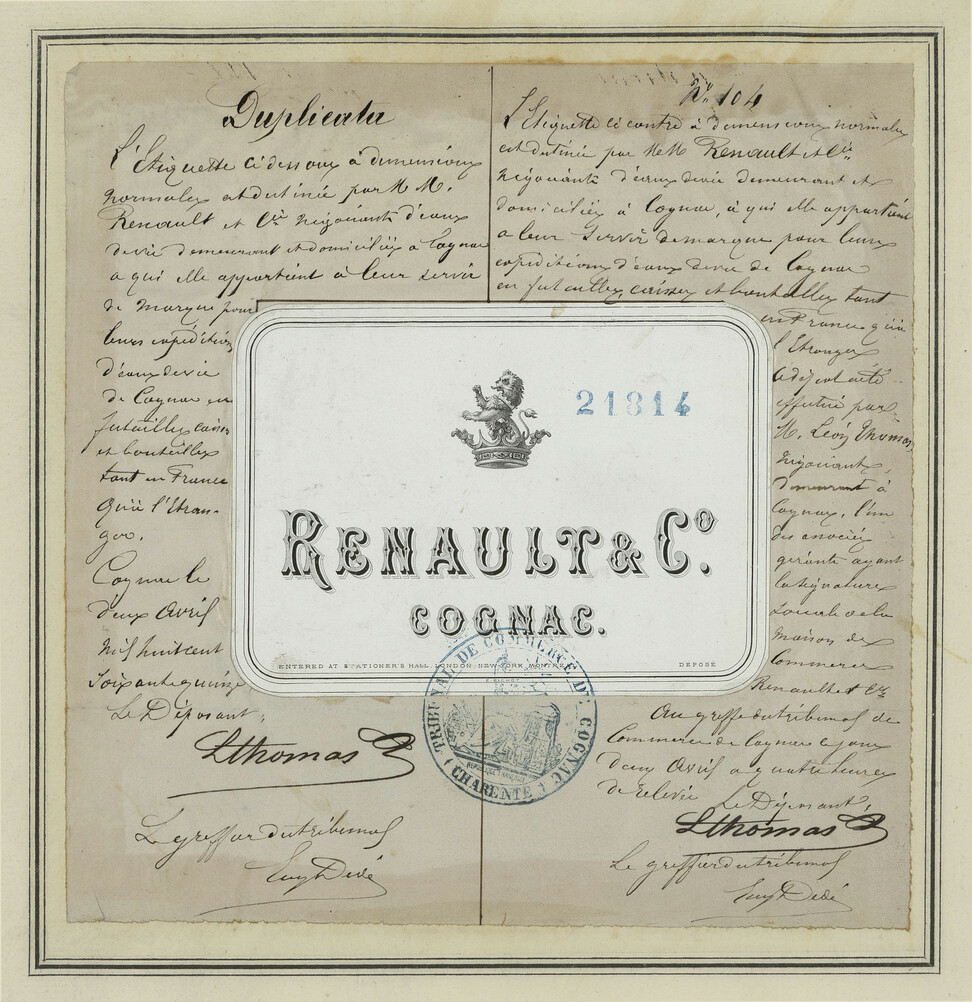 Duplicata
L'Etiquette ci dessous à dimensions
normales est destinée par M M.
Renault et Cie négociants d'eaux
devie demeurant et domiciliés à Cognac
a qui elle appartient à leur servir
de marque pour
leurs expéditions
d'eaux devie
de Cognac en
futailles caisses
et bouteilles
tant en France
qu'à l'Etran-
ger.
Cognac le
deux Avril
mil huit cent
soixante quinze
Le Déposant,
LThomas
Le greffier du tribunal
Eug Dédé
No 104
L'Etiquette ci contre à dimensions normales
est destinée par M M Renault et Cie
négociants d'eaux devie demeurant et
domiciliés à Cognac, à qui elle appartient
a leur servir de marque pour leurs
expéditions d'eaux devie de Cognac
en futailles, caisses et bouteilles tant
en France qu'à
l'Etranger
Le dépot a été
effectué par
M. Léon Thomas,
négociant,
demeurant à
Cognac, l'un
des associés
gérants ayant
la signature
sociale de la
maison de
Commerce
Renault et Cie
Au greffe du tribunal de
Commerce de Cognac ce jour
deux Avril a quatre heures
de relevée
Le Déposant,
LThomas
Le greffier du tribunal
Eug Dédé
21814
RENAULT & Co.
COGNAC.
ENTERED AT STATIONER'S HALL, LONDON NEW-YORK MONTREAL
DEPOSÉ
TRIBUNAL DE COMMERCE DE COGNAC
(CHARENTE)
REPUBLIQUE FRANÇAISE